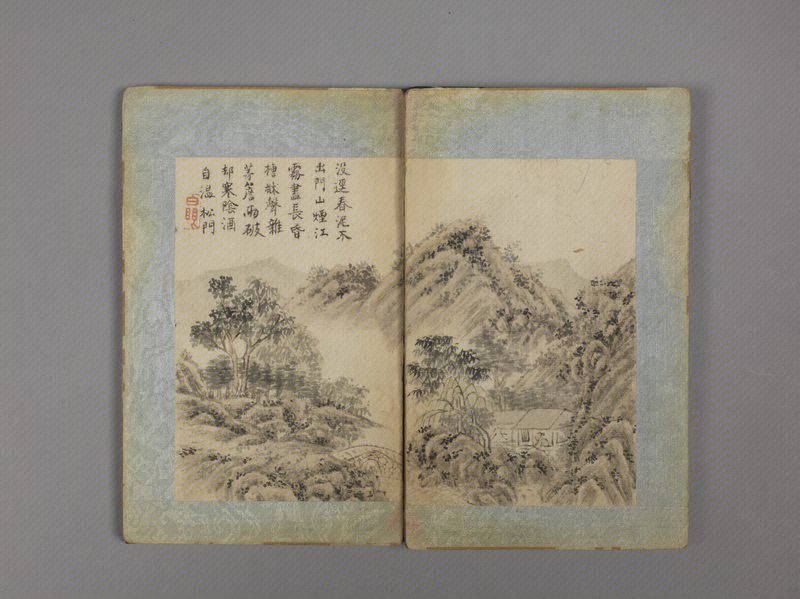 沒春泥不
出門山煙江
霧晝長昏
槽牀聲雜
茅簷雨破
却寒陰酒
自溫 松門